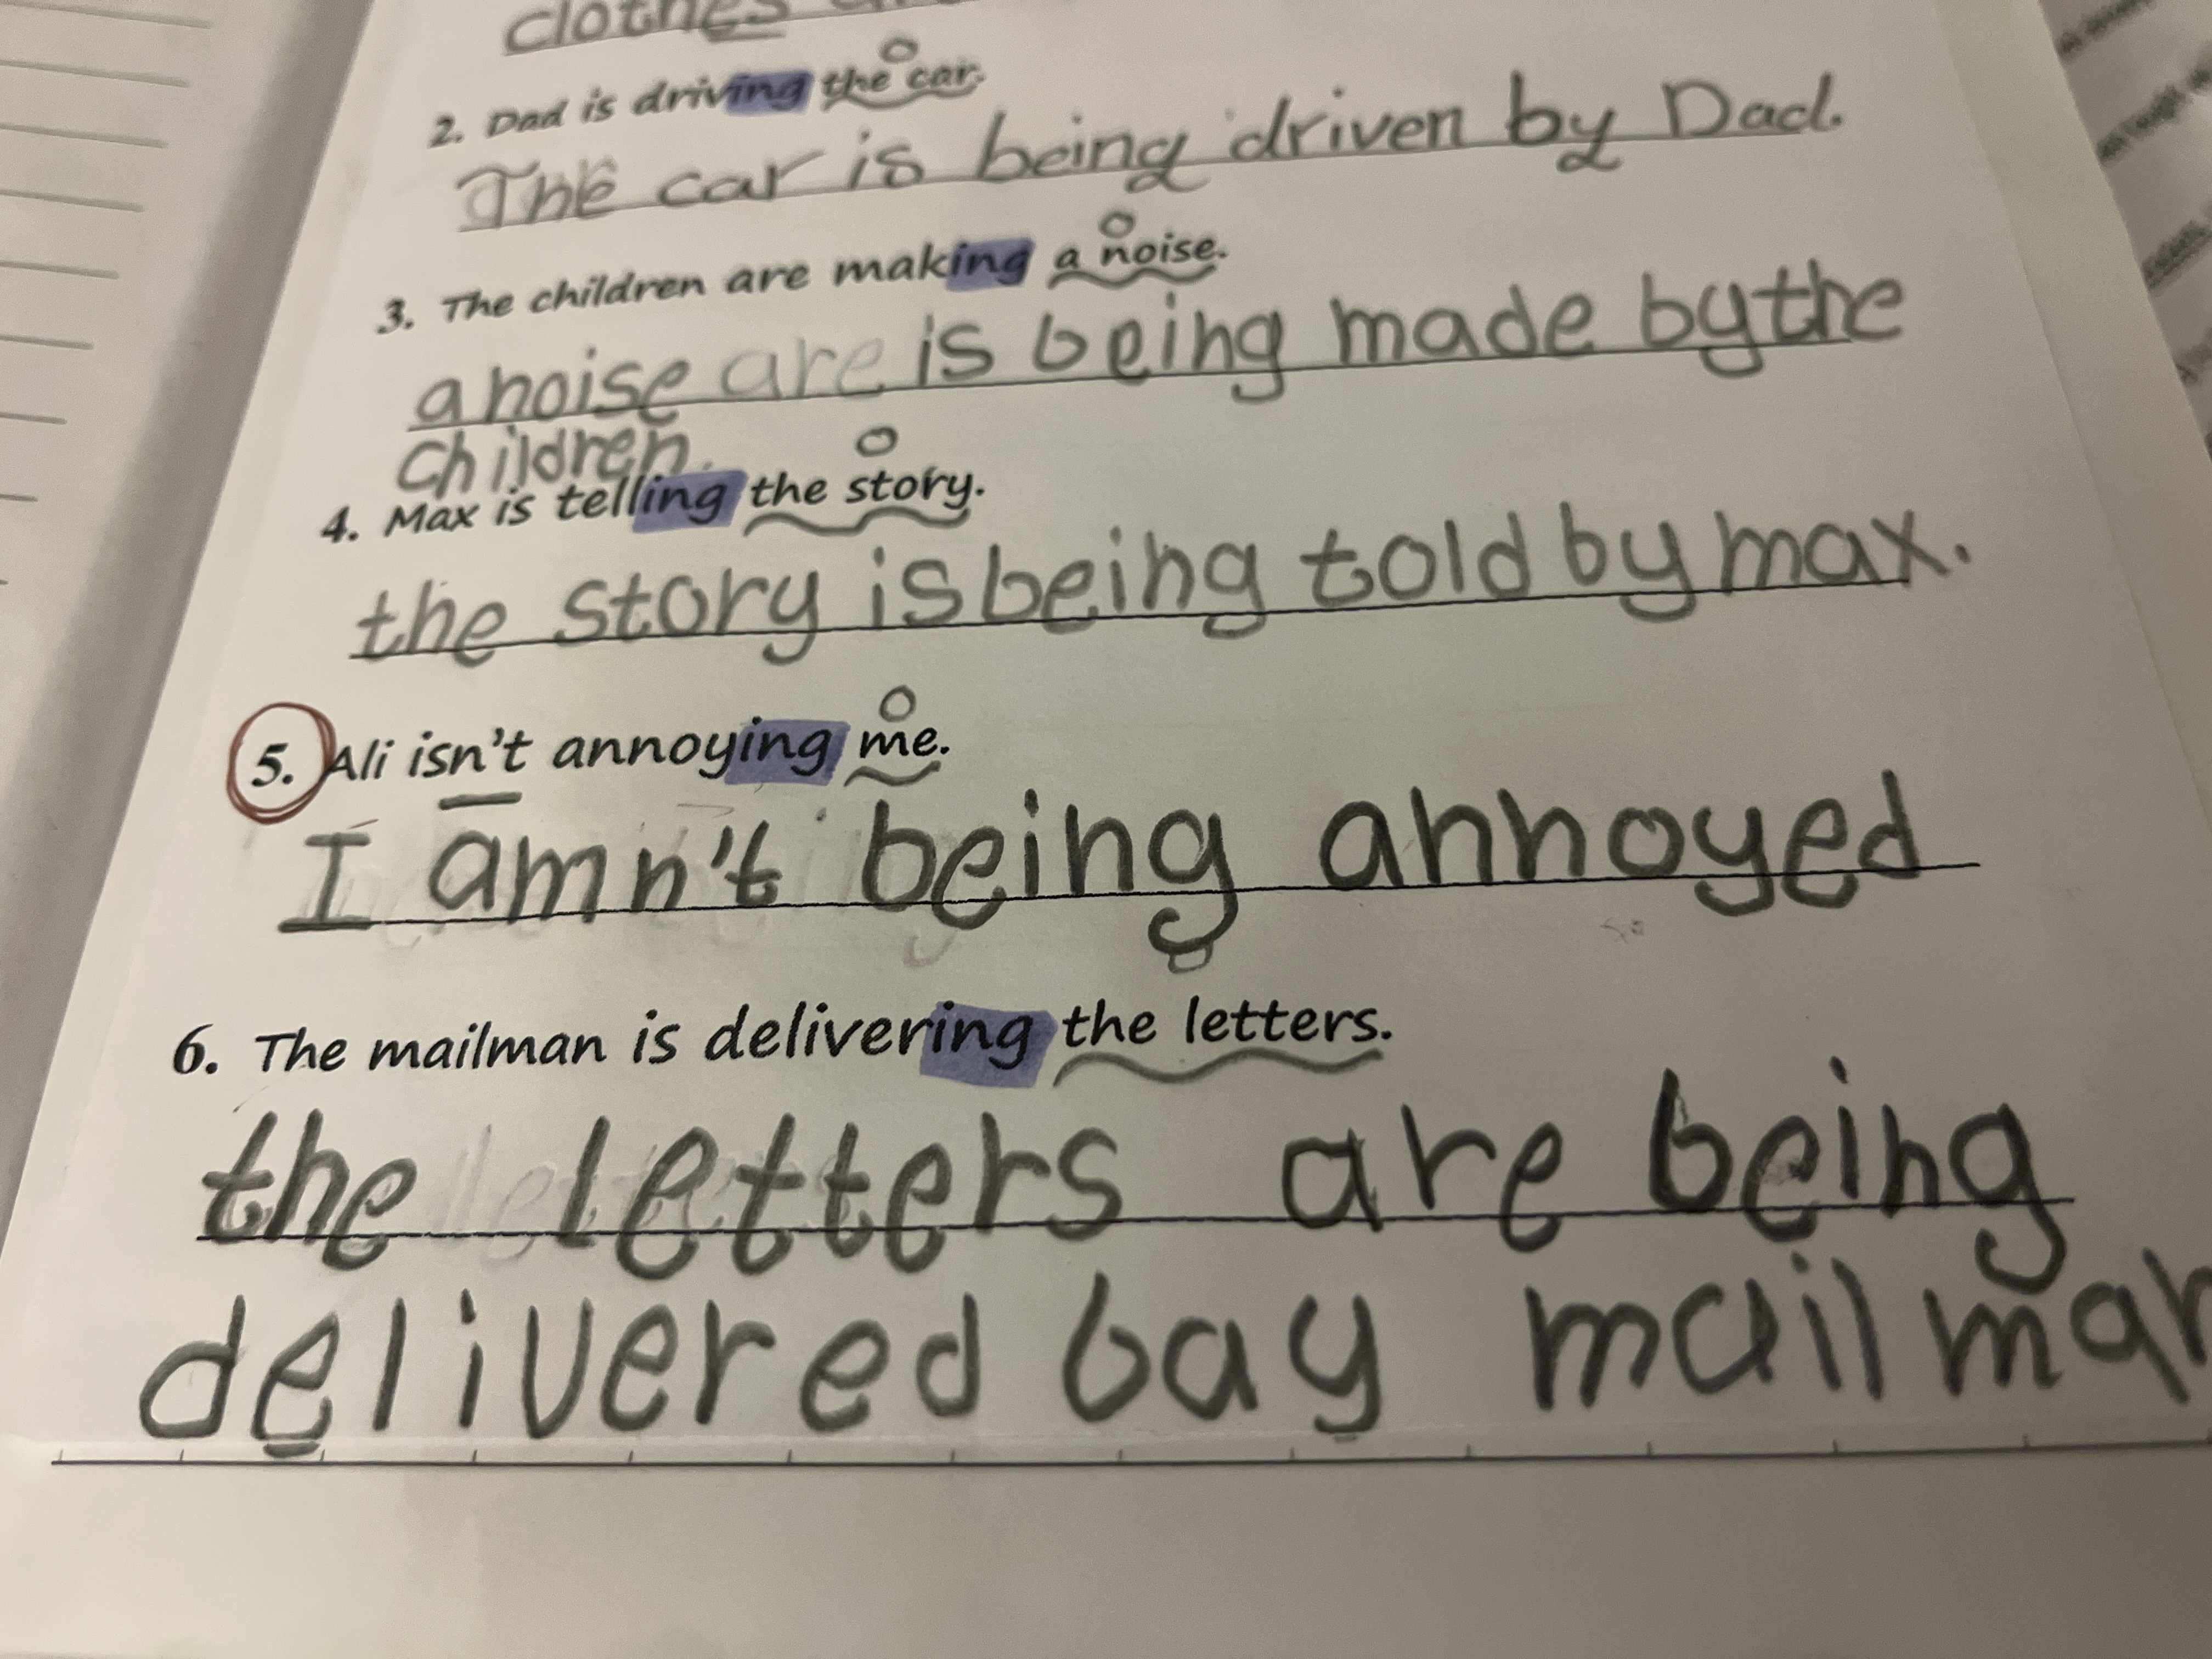 clothes
2. Dad is driving the car.
The car is being driven by Dad.
3. The children are making a noise.
a noise are is being made by the
children.
4. Max is telling the story.
the story is being told by max.
5. Ali isn't annoying me.
I amn't being annoyed
6. The mailman is delivering the letters.
the letters are being
delivered bay mailman